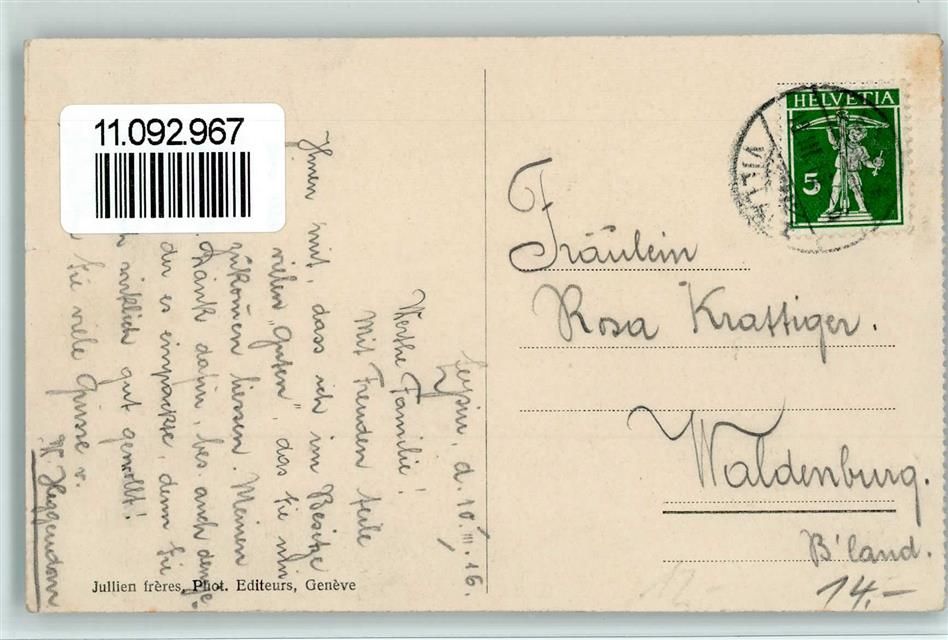 11.092.967
HELVETIA
5
Leysin, d. 10. III. 16.
Werthe Familie!
Mit Freuden teile
Ihnen mit, dass ich im Besitze
vielen „Guten", das Sie mir
zukomen liessen. Meinen
Dank dafür, bes. auch denje
der es einpackte, denn Sie
wirklich gut gemollt!
Sie viele Grüsse v.
W. Heggendorn
Fräulein
Rosa Krattiger.
Waldenburg.
B'land.
14.-
Jullien frères, Phot. Editeurs, Genève